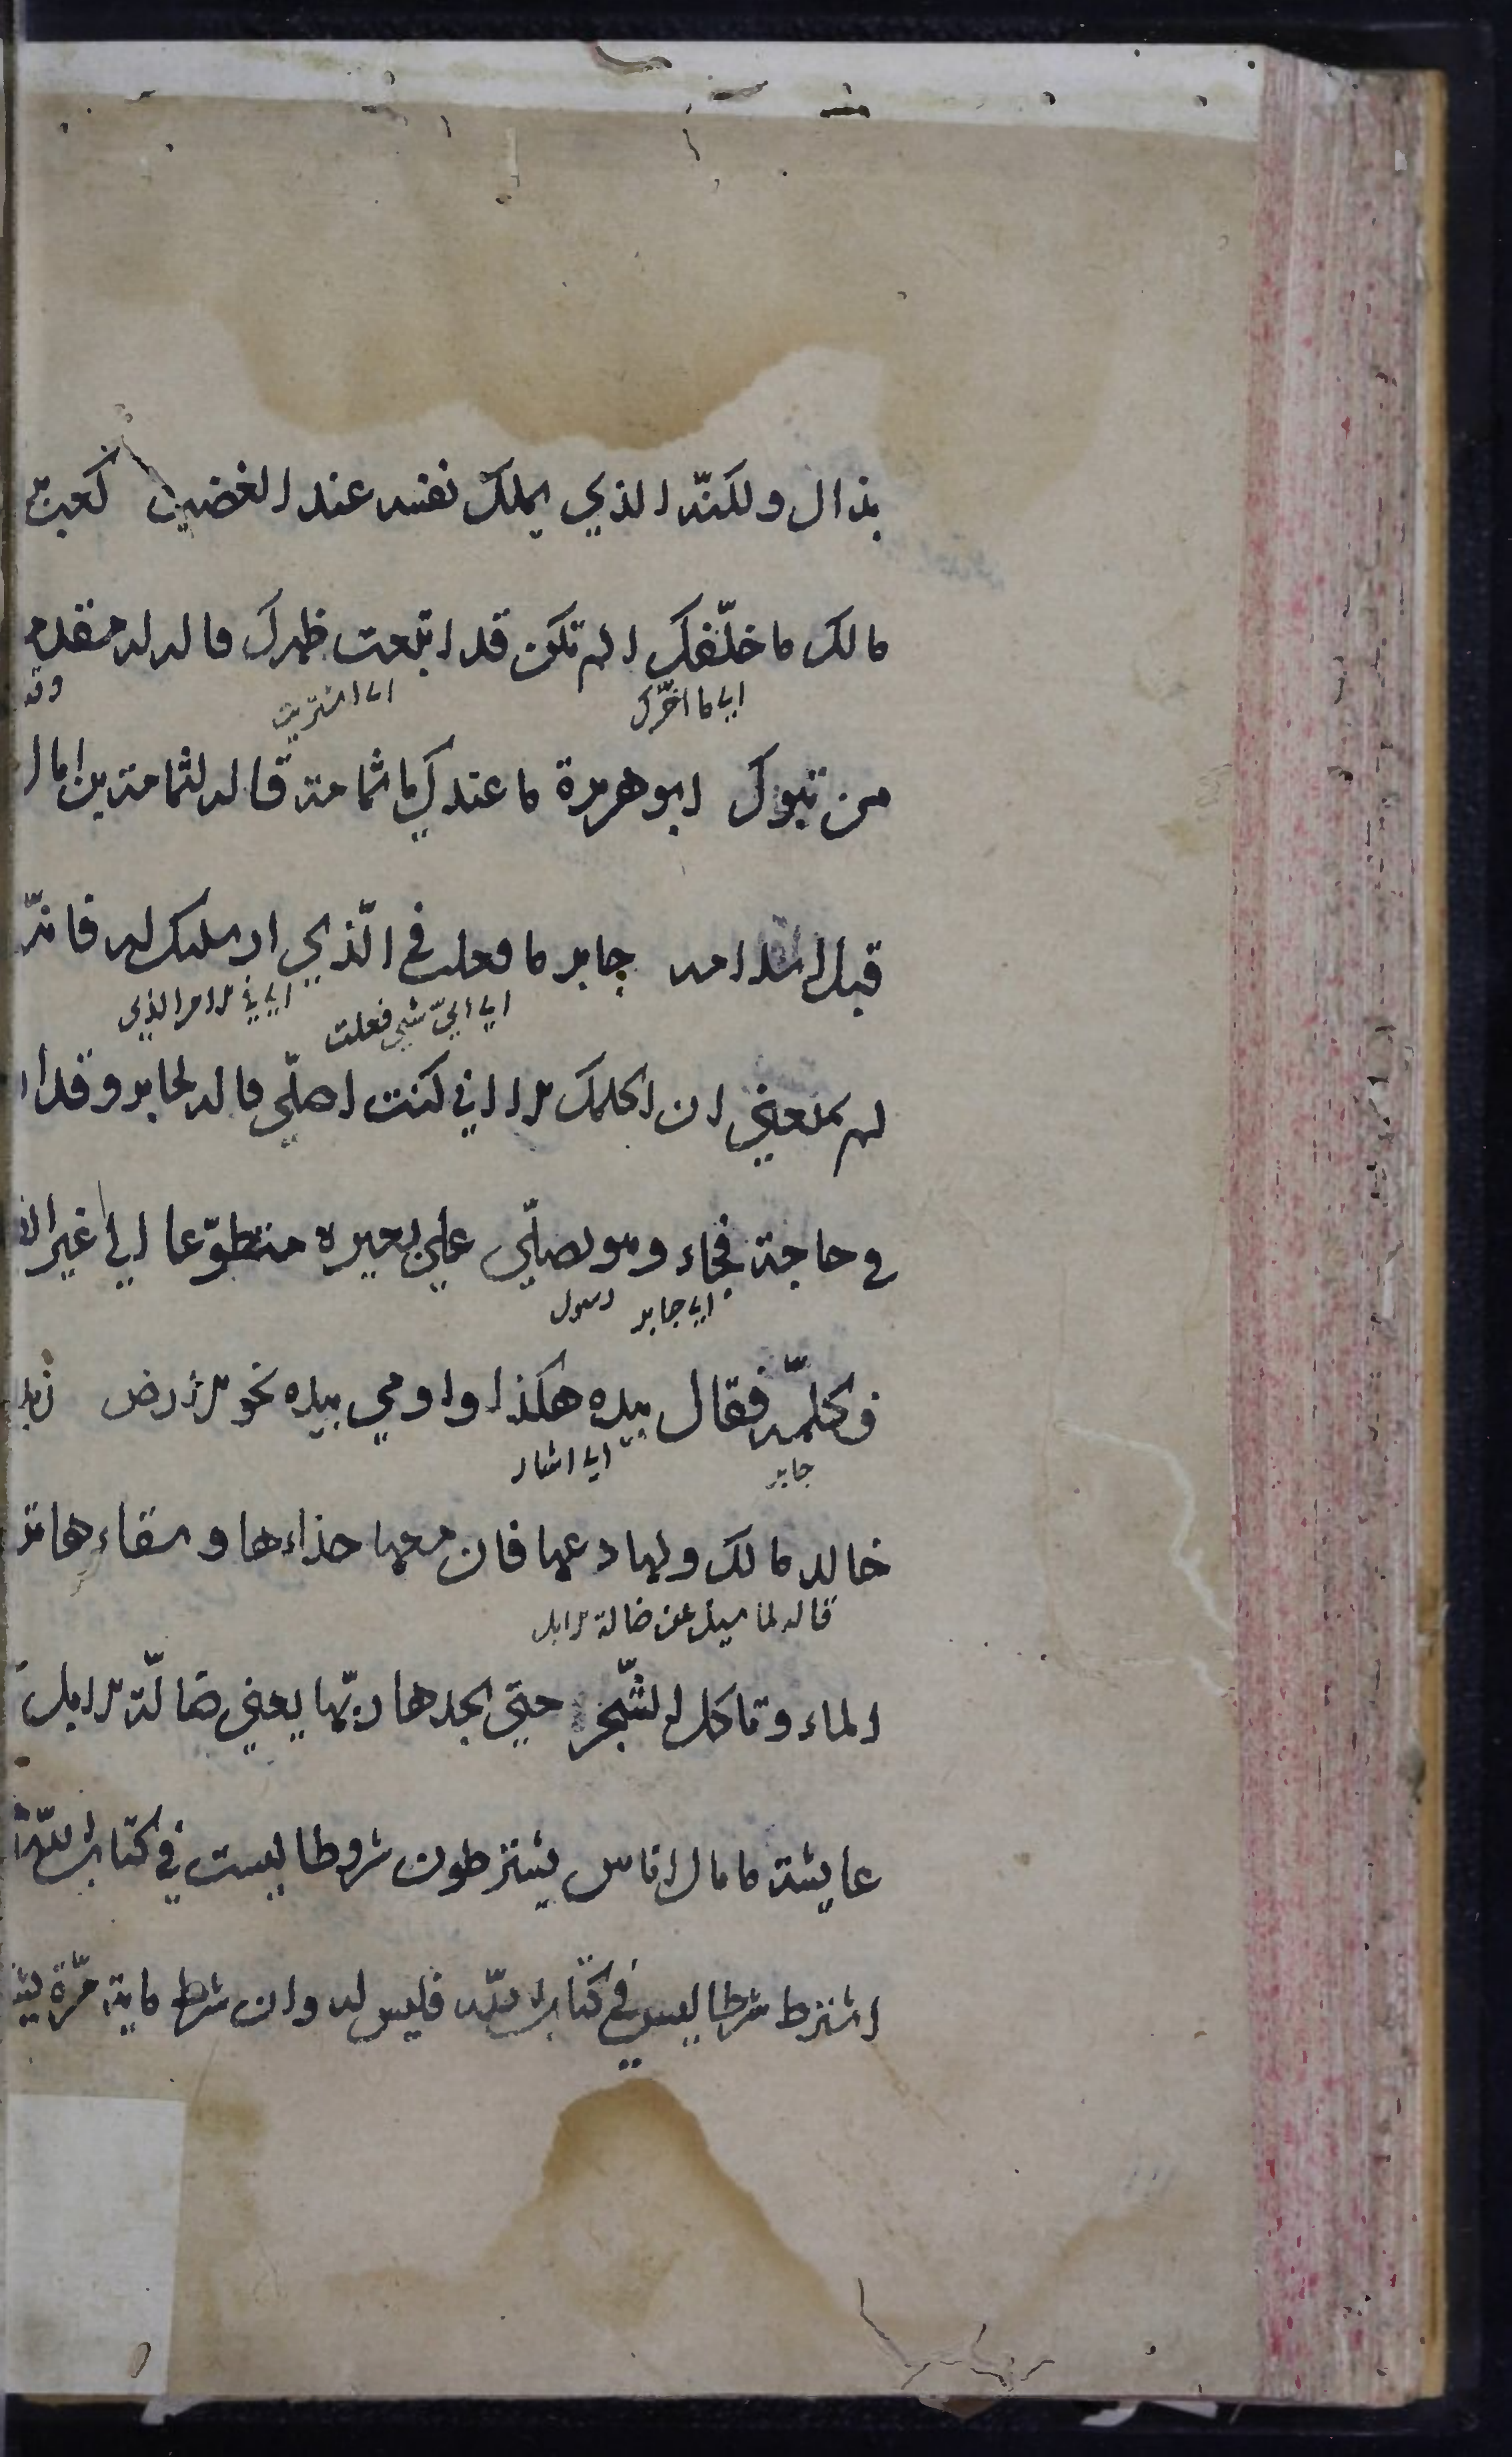 بذاك ولكنّه الذي يملك نفسه عند الغضب كعب
مالك ما خلّفك الم تكن قد ابتعت ظهرك قاله له مقدمه
اي ما اخّرك اي اشتريت
من تبوك ابو هريرة ما عندك يا ثمامة قاله لثمامة بن اثال
قبل اسلامه جابر ما فعلت في الّذي ارسلتك له فانّه
اي ايّ شيٍ فعلت اي في الامر الذي
لم يمنعني ان اكلمك الا اني كنت اصلّي قاله لجابر وقد ا
في حاجة فجاء وهو يصلّي علي بعيره متطوّعا الي غير
اي جابر رسول
فكلّمه فقال بيده هكذا واومي بيده نحو الارض زيد
جابر اي اشار
خالد مالك ولها دعها فان معها حذاءها وسقاءها تر
قاله لما سيل عن ضالة الابل
الماء وتاكل الشّجر حتي يجدها ربّها يعني ضالّة الابل
عايشة ما بال اناس يشترطون شروطا ليست في كتاب اللّه
اشترط شرطا ليس في كتاب اللّه فليس له وان شرط ماية مرّة